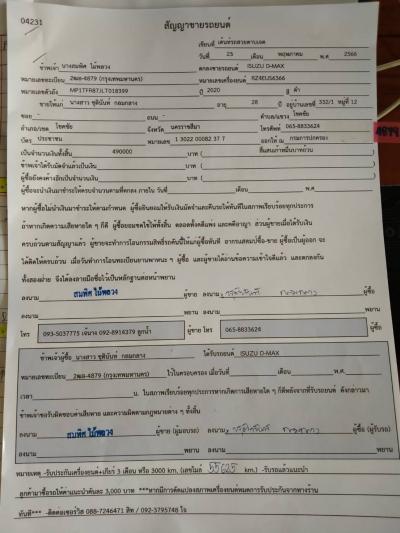 04231
สัญญาขายรถยนต์
เขียนที่ เต้นท์รถสวยตามบลด
วันที่ 23 เดือน พฤษภาคม พ.ศ 2566
ข้าพเจ้า นางสมพิศ ไม้พลวง ตกลงขายรถยนต์ ISUZU D-MAX
หมายเลขทะเบียน 2ฒล-4879 (กรุงเทพมหานคร) หมายเลขเครื่องยนต์ RZ4EUS6366
หมายเลขตัวถัง MP1TFR87JLT018399 ปี 2020 สี ดำ
ขายให้แก่ นางสาว ชุตินันท์ กลมกลาง อายุ 28 ปี อยู่บ้านเลขที่ 332/1 หมู่ที่ 12
ซอย - ถนน - ตำบล/แขวง โชคชัย
อำเภอ/เขต โชคชัย จังหวัด นครราชสีมา โทรศัพท์ 065-8833624
บัตร ประชาชน หมายเลข 1 3022 00082 37 7 ออกให้ ณ กรมการปกครอง
เป็นจำนวนเงินทั้งสิ้น 490000 บาท ( สี่แสนเก้าหมื่นบาทถ้วน )
ข้าพเจ้าได้รับมัดจำแล้วเป็นเงิน บาท ( )
ผู้ซื้อยังคงค้างอีกเป็นจำนวนเงิน บาท ( )
ผู้ซื้อจะนำเงินมาชำระให้ครบจำนวนตามที่ตกลง ภายใน วันที่ เดือน พ.ศ
หากผู้ซื้อไม่นำเงินมาชำระให้ตามกำหนด ผู้ซื้อยินยอมให้ริบเงินมัดจำและคืนรถให้ทันทีในสภาพเรียบร้อยทุกประการ
ถ้าหากเกิดความเสียหายใด ๆ ก็ดี ผู้ซื้อยอมชดใช้ให้ทั้งสิ้น ตลอดทั้งคดีแพ่ง และคดีอาญา ส่วนผู้ขายเมื่อได้รับเงิน
ครบถ้วนตามสัญญาแล้ว ผู้ขายจะทำการโอนกรรมสิทธิ์รถคันนี้ให้แก่ผู้ซื้อทันที อากรแสตมป์ซื้อ-ขาย ผู้ซื้อเป็นผู้ออก จะ
ได้ติดให้ครบถ้วน เมื่อวันทำการโอนทะเบียนยานพาหนะ ๆ ผู้ซื้อ และผู้ขายได้อ่านข้อความเข้าใจดีแล้ว และตกลงกัน
ทั้งสองฝ่าย จึงได้ลงลายมือชื่อไว้เป็นหลักฐานต่อหน้าพยาน
ลงนาม สมพิศ ไม้พลวง ผู้ขาย ลงนาม ชุตินันท์ กลมกลาง ผู้ซื้อ
ลงนาม พยาน ลงนาม พยาน
โทร 093-5037775 เจ๊นาง 092-8914379 ลูกน้ำ ผู้ขาย โทร 065-8833624 ผู้ซื้อ
ข้าพเจ้าผู้ซื้อ นางสาว ชุตินันท์ กลมกลาง ได้รับรถยนต์ ISUZU D-MAX
หมายเลขทะเบียน 2ฒล-4879 (กรุงเทพมหานคร) ไว้ในครอบครอง เมื่อวันที่ เดือน พ.ศ
เวลา น. ในสภาพเรียบร้อยทุกประการหากเกิดการเสียหายใด ๆ ก็ดีหลังจากที่รับรถยนต์ ดังกล่าวมา
ข้าพเจ้าขอรับผิดชอบค่าเสียหาย และความผิดตามกฎหมายต่าง ๆ ทั้งสิ้น
ลงนาม สมพิศ ไม้พลวง ผู้ขาย (ผู้มอบรถ) ลงนาม ชุตินันท์ กลมกลาง ผู้ซื้อ (ผู้รับรถ)
ลงนาม พยาน ลงนาม พยาน
หมายเหตุ -รับประกันเครื่องยนต์+เกียร์ 3 เดือน หรือ 3000 km. (เลขไมล์ 55625 km.) -รับรถแล้วแนะนำ
ลูกค้ามาซื้อรถให้ค่าแนะนำคันละ 3,000 บาท ***หากมีการดัดแปลงสภาพเครื่องยนต์หมดการรับประกันจากทางร้าน
ทันที*** -ติดต่อเซอร์วิส 088-7246471 สิท / 092-3795748 ใจ
4879